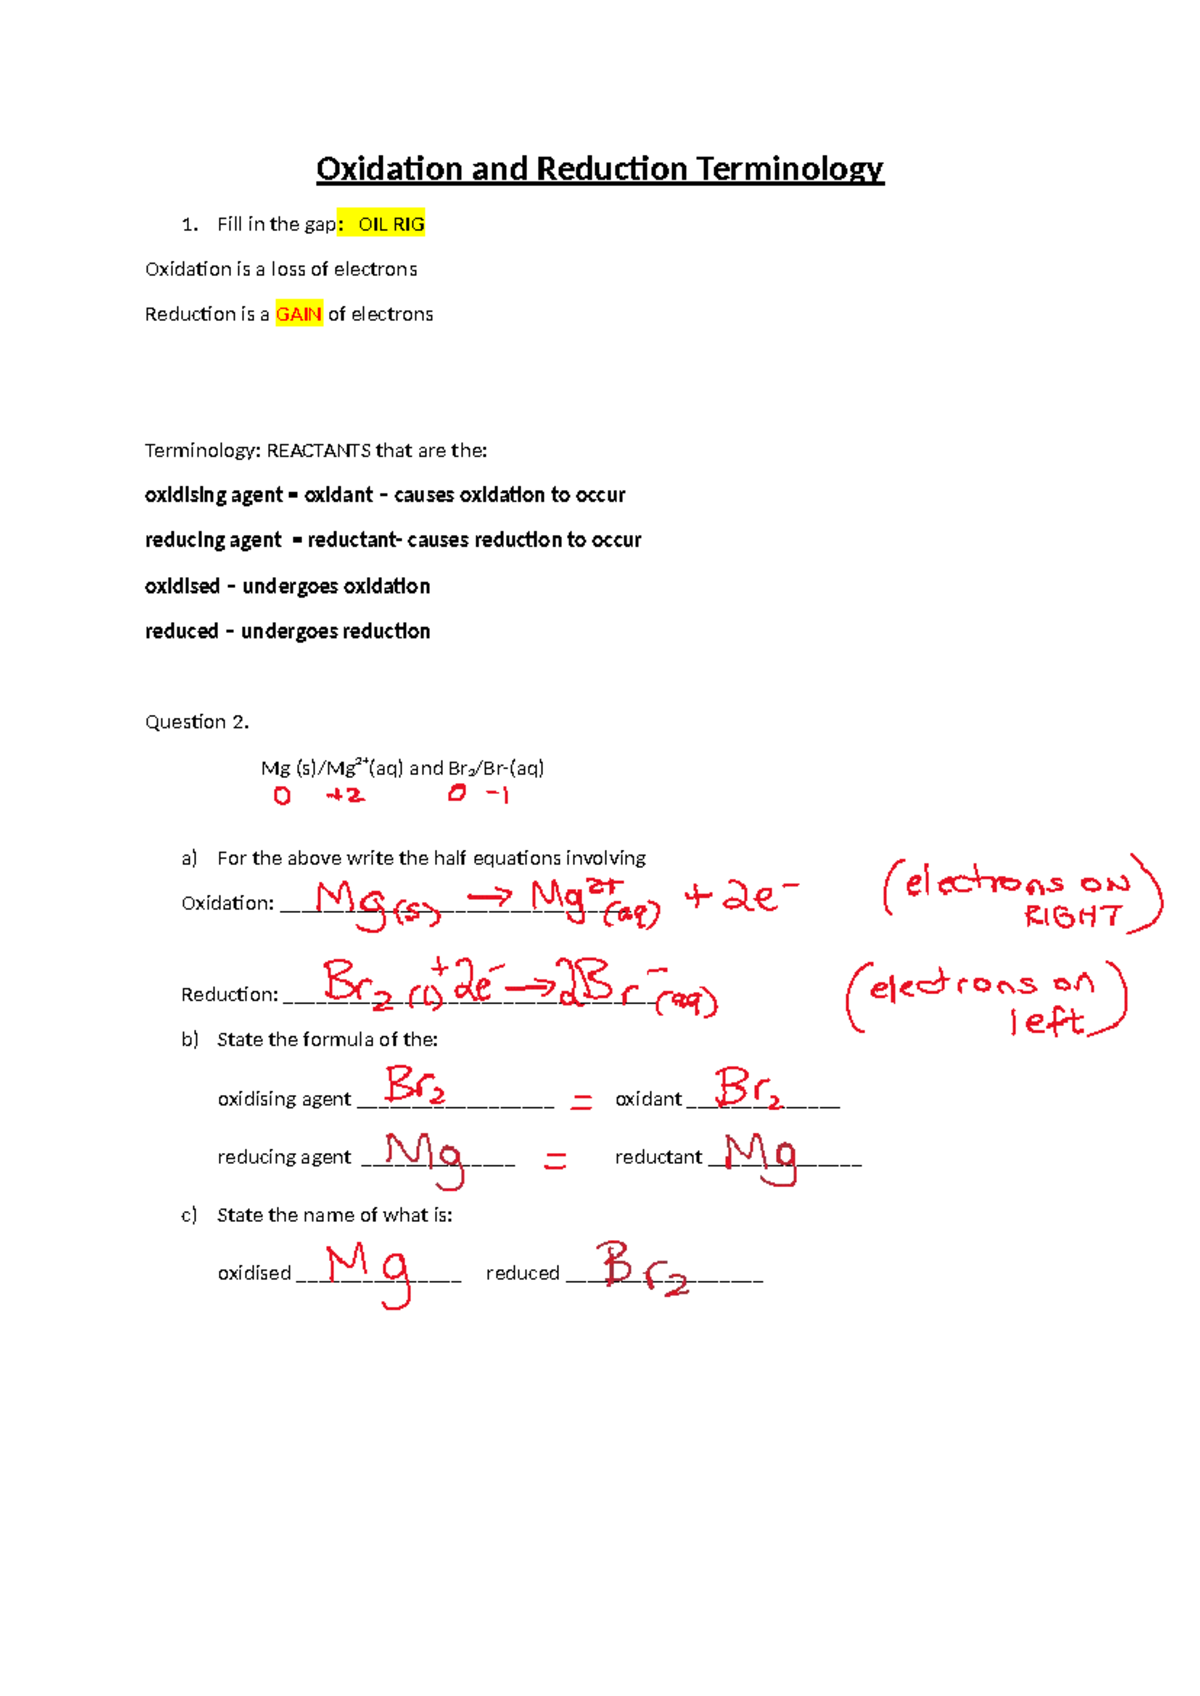 Oxidation and Reduction Terminology
1. Fill in the gap: OIL RIG
Oxidation is a loss of electrons
Reduction is a GAIN of electrons
Terminology: REACTANTS that are the:
oxidising agent = oxidant – causes oxidation to occur
reducing agent = reductant- causes reduction to occur
oxidised – undergoes oxidation
reduced – undergoes reduction
Question 2.
Mg (s)/Mg²⁺(aq) and Br₂/Br-(aq)
0 +2 0 -1
a) For the above write the half equations involving
Oxidation: Mg(s) → Mg²⁺(aq) + 2e⁻ (electrons ON RIGHT)
Reduction: Br₂(l) + 2e⁻ → 2Br⁻(aq) (electrons on left)
b) State the formula of the:
oxidising agent Br₂ = oxidant Br₂
reducing agent Mg = reductant Mg
c) State the name of what is:
oxidised Mg reduced Br₂